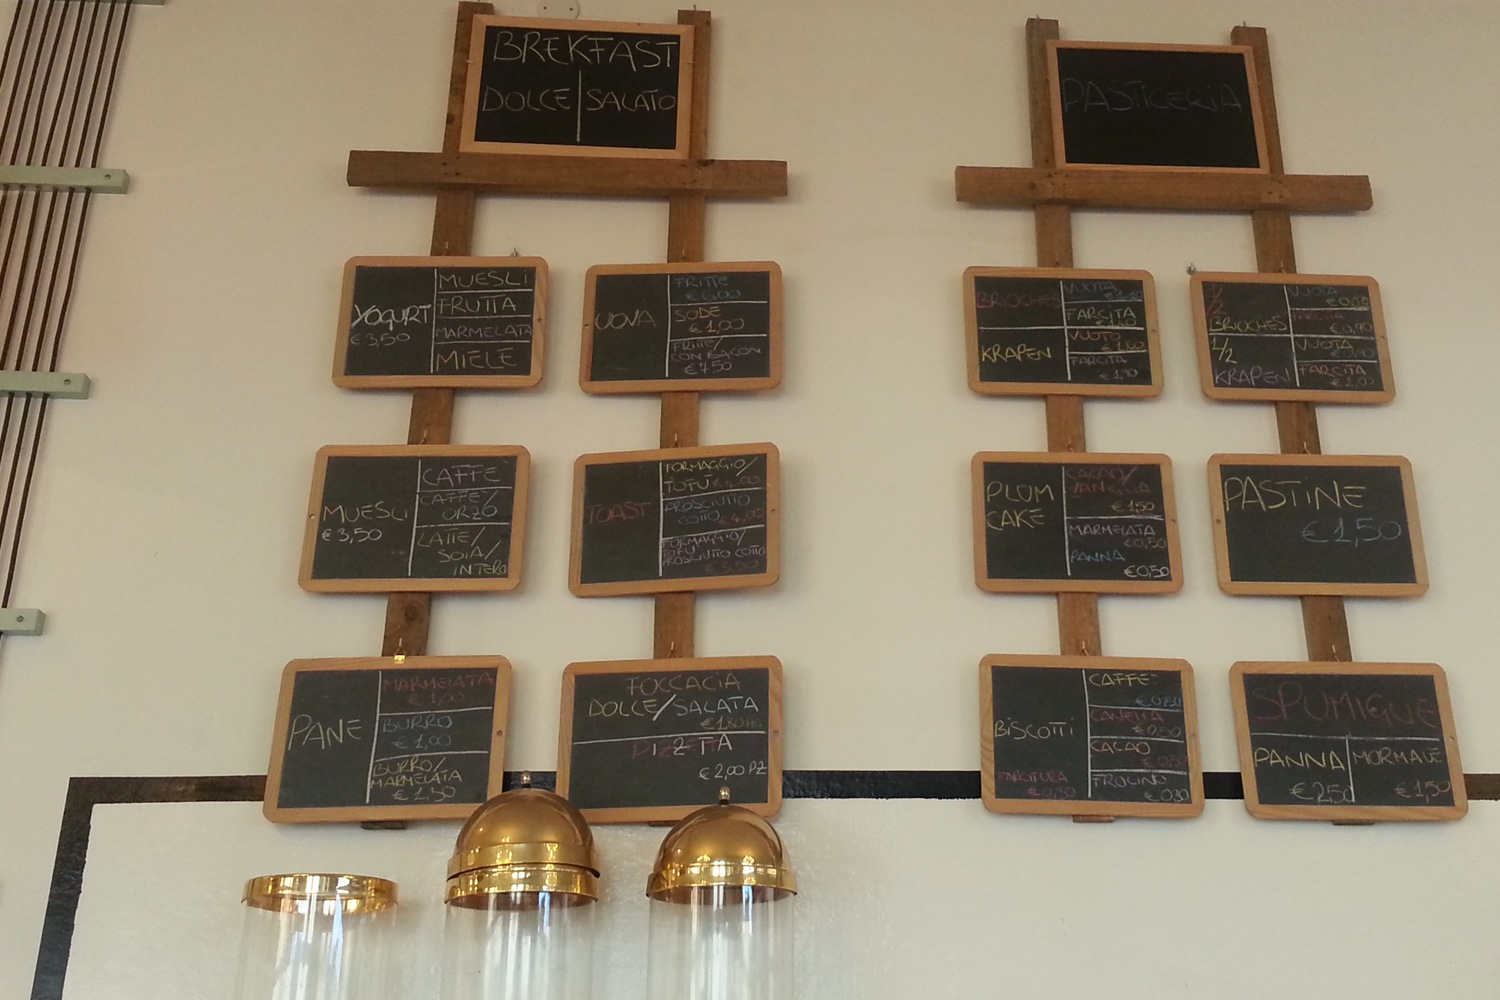 BREKFAST
DOLCE SALATO
YOGURT
€3,50
MUESLI
FRUTTA
MARMELATA
MIELE
UOVA
FRITTE
€6,00
SODE
€1,00
FRITTE/
CON BACON
€7,50
MUESLI
€3,50
CAFFE'
CAFFE'/
ORZO
LATTE/
SOIA/
INTERO
TOAST
FORMAGGIO/
TOFU' €4,00
PROSCIUTTO
COTTO €4,00
FORMAGGIO/
TOFU'
PROSCIUTTO COTTO
€5,50
PANE
MARMELATA
€1,00
BURRO
€1,00
BURRO/
MARMELATA
€1,50
FOCCACIA
DOLCE/SALATA
€1,80 HG
PIZETTA
€2,00 PZ
PASTICERIA
BRIOCHES
VUOTA
FARCITA
KRAPEN
VUOTO
FARCITA
€1,10
1/2
BRIOCHES
VUOTA
FARCITA
1/2
KRAPEN
VUOTA
FARCITA
€1,00
PLUM
CAKE
CACAO/
VANIGLIA
€1,50
MARMELATA
€0,50
PANNA
€0,50
PASTINE
€1,50
BISCOTTI
FARCITURA
€0,30
CAFFE'
€0,80
CANELLA
€0,80
CACAO
€0,80
€0,80
SPUMIGLIE
PANNA
€2,50
MORMALE
€1,50